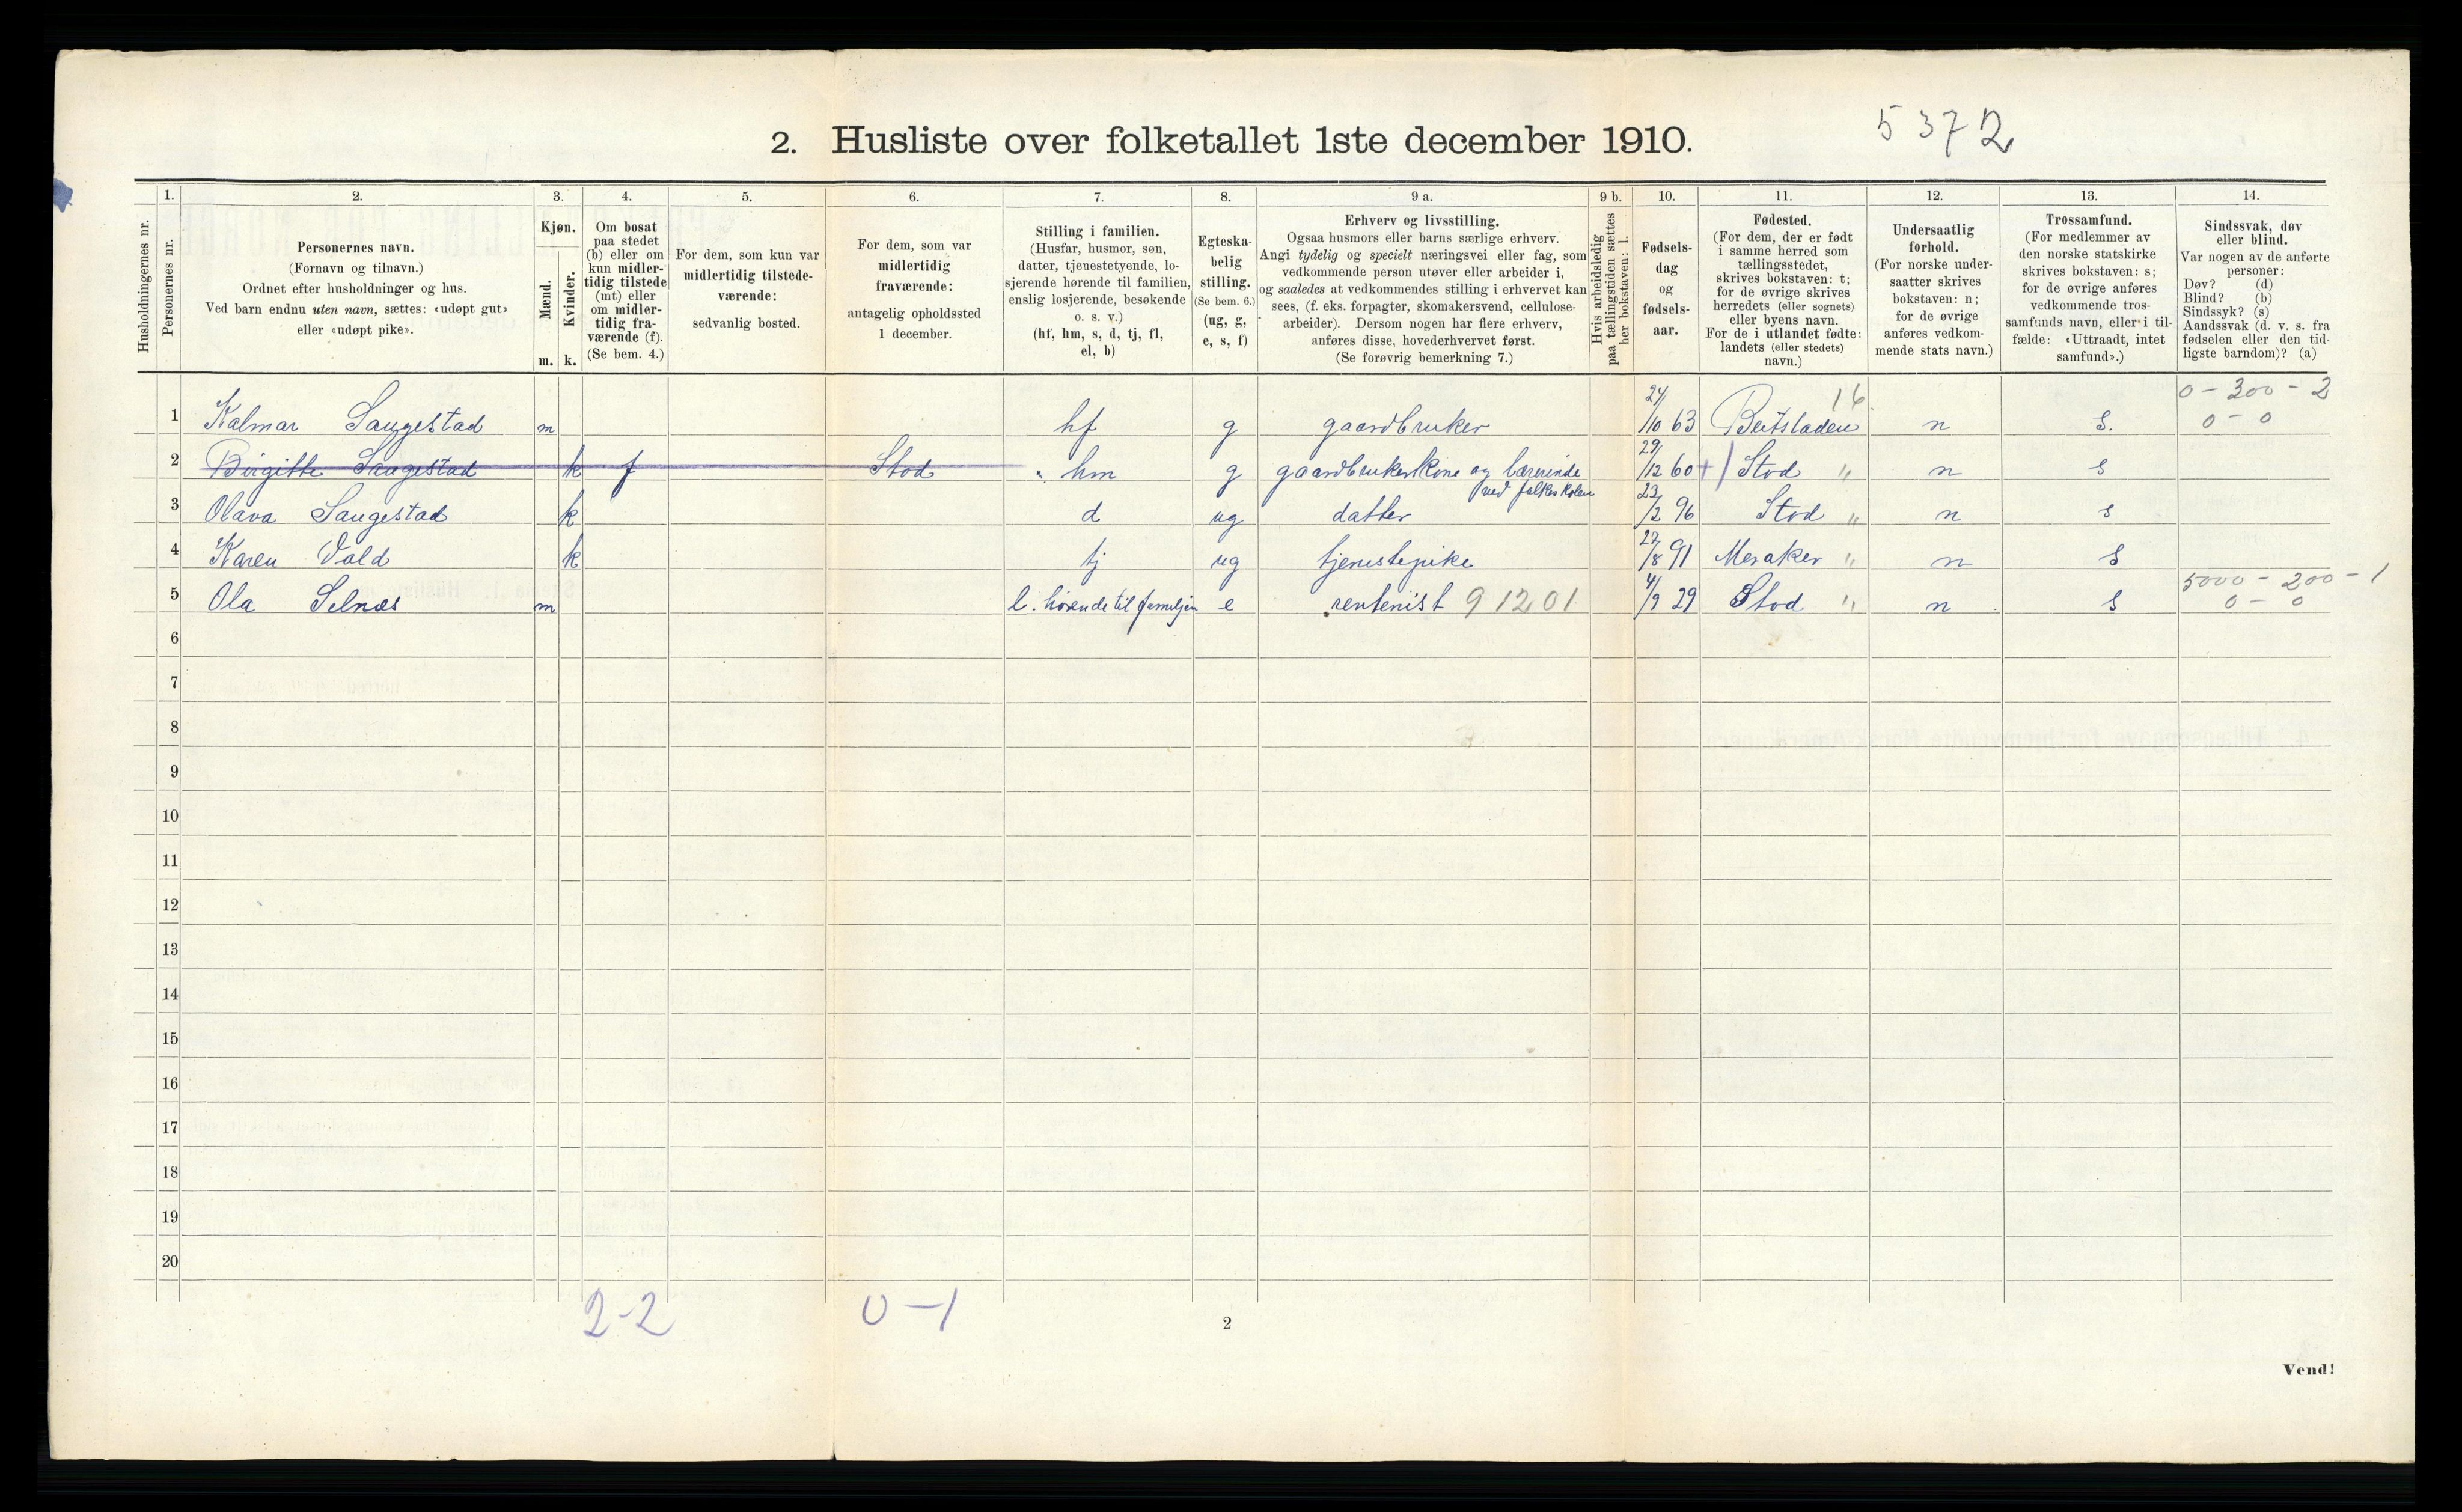 5372
2. Husliste over folketallet 1ste december 1910.
Husholdningernes nr.
1.
Personernes nr.
2.
Personernes navn.
(Fornavn og tilnavn.)
Ordnet efter husholdninger og hus.
Ved barn endnu uten navn, sættes: «udøpt gut»
eller «udøpt pike».
3.
Kjøn.
Mænd.
Kvinder.
m. k.
4.
Om bosat
paa stedet
(b) eller om
kun midler-
tidig tilstede
(mt) eller
om midler-
tidig fra-
værende (f).
(Se bem. 4.)
5.
For dem, som kun var
midlertidig tilstede-
værende:
sedvanlig bosted.
6.
For dem, som var
midlertidig
fraværende:
antagelig opholdssted
1 december.
7.
Stilling i familien.
(Husfar, husmor, søn,
datter, tjenestetyende, lo-
sjerende hørende til familien,
enslig losjerende, besøkende
o. s. v.)
(hf, hm, s, d, tj, fl,
el, b)
8.
Egteska-
belig
stilling.
(Se bem. 6.)
(ug, g,
e, s, f)
9 a.
Erhverv og livsstilling.
Ogsaa husmors eller barns særlige erhverv.
Angi tydelig og specielt næringsvei eller fag, som
vedkommende person utøver eller arbeider i,
og saaledes at vedkommendes stilling i erhvervet kan
sees, (f. eks. forpagter, skomakersvend, cellulose-
arbeider). Dersom nogen har flere erhverv,
anføres disse, hovederhvervet først.
(Se forøvrig bemerkning 7.)
9 b.
Hvis arbeidsledig
paa tællingstiden sættes
her bokstaven: l.
10.
Fødsels-
dag
og
fødsels-
aar.
11.
Fødested.
(For dem, der er født
i samme herred som
tællingsstedet,
skrives bokstaven: t;
for de øvrige skrives
herredets (eller sognets)
eller byens navn.
For de i utlandet fødte:
landets (eller stedets)
navn.)
12.
Undersaatlig
forhold.
(For norske under-
saatter skrives
bokstaven: n;
for de øvrige
anføres vedkom-
mende stats navn.)
13.
Trossamfund.
(For medlemmer av
den norske statskirke
skrives bokstaven: s;
for de øvrige anføres
vedkommende tros-
samfunds navn, eller i til-
fælde: «Uttraadt, intet
samfund».)
14.
Sindssvak, døv
eller blind.
Var nogen av de anførte
personer:
Døv? (d)
Blind? (b)
Sindssyk? (s)
Aandssvak (d. v. s. fra
fødselen eller den tid-
ligste barndom)? (a)
16 0-300-2
1 Kalmar Saugestad m hf g gaardbruker 24/10 63 Beitstaden n s. 0-0
2 Birgitte Saugestad k f Stod hm g gaardbrukerkone og lærerinde ved folkeskolen 29/12 60 + Stod " n s
3 Olava Saugestad k d ug datter 23/2 96 Stod " n s
4 Karen Vold k tj ug tjenestepike 27/8 91 Meraker " n s
5000-200-1
5 Ola Selnæs m l. hørende til familjen e rentenist 91201 4/9 29 Stod " n s 0-0
6
7
8
9
10
11
12
13
14
15
16
17
18
19
20
2-2 0-1
2
Vend!